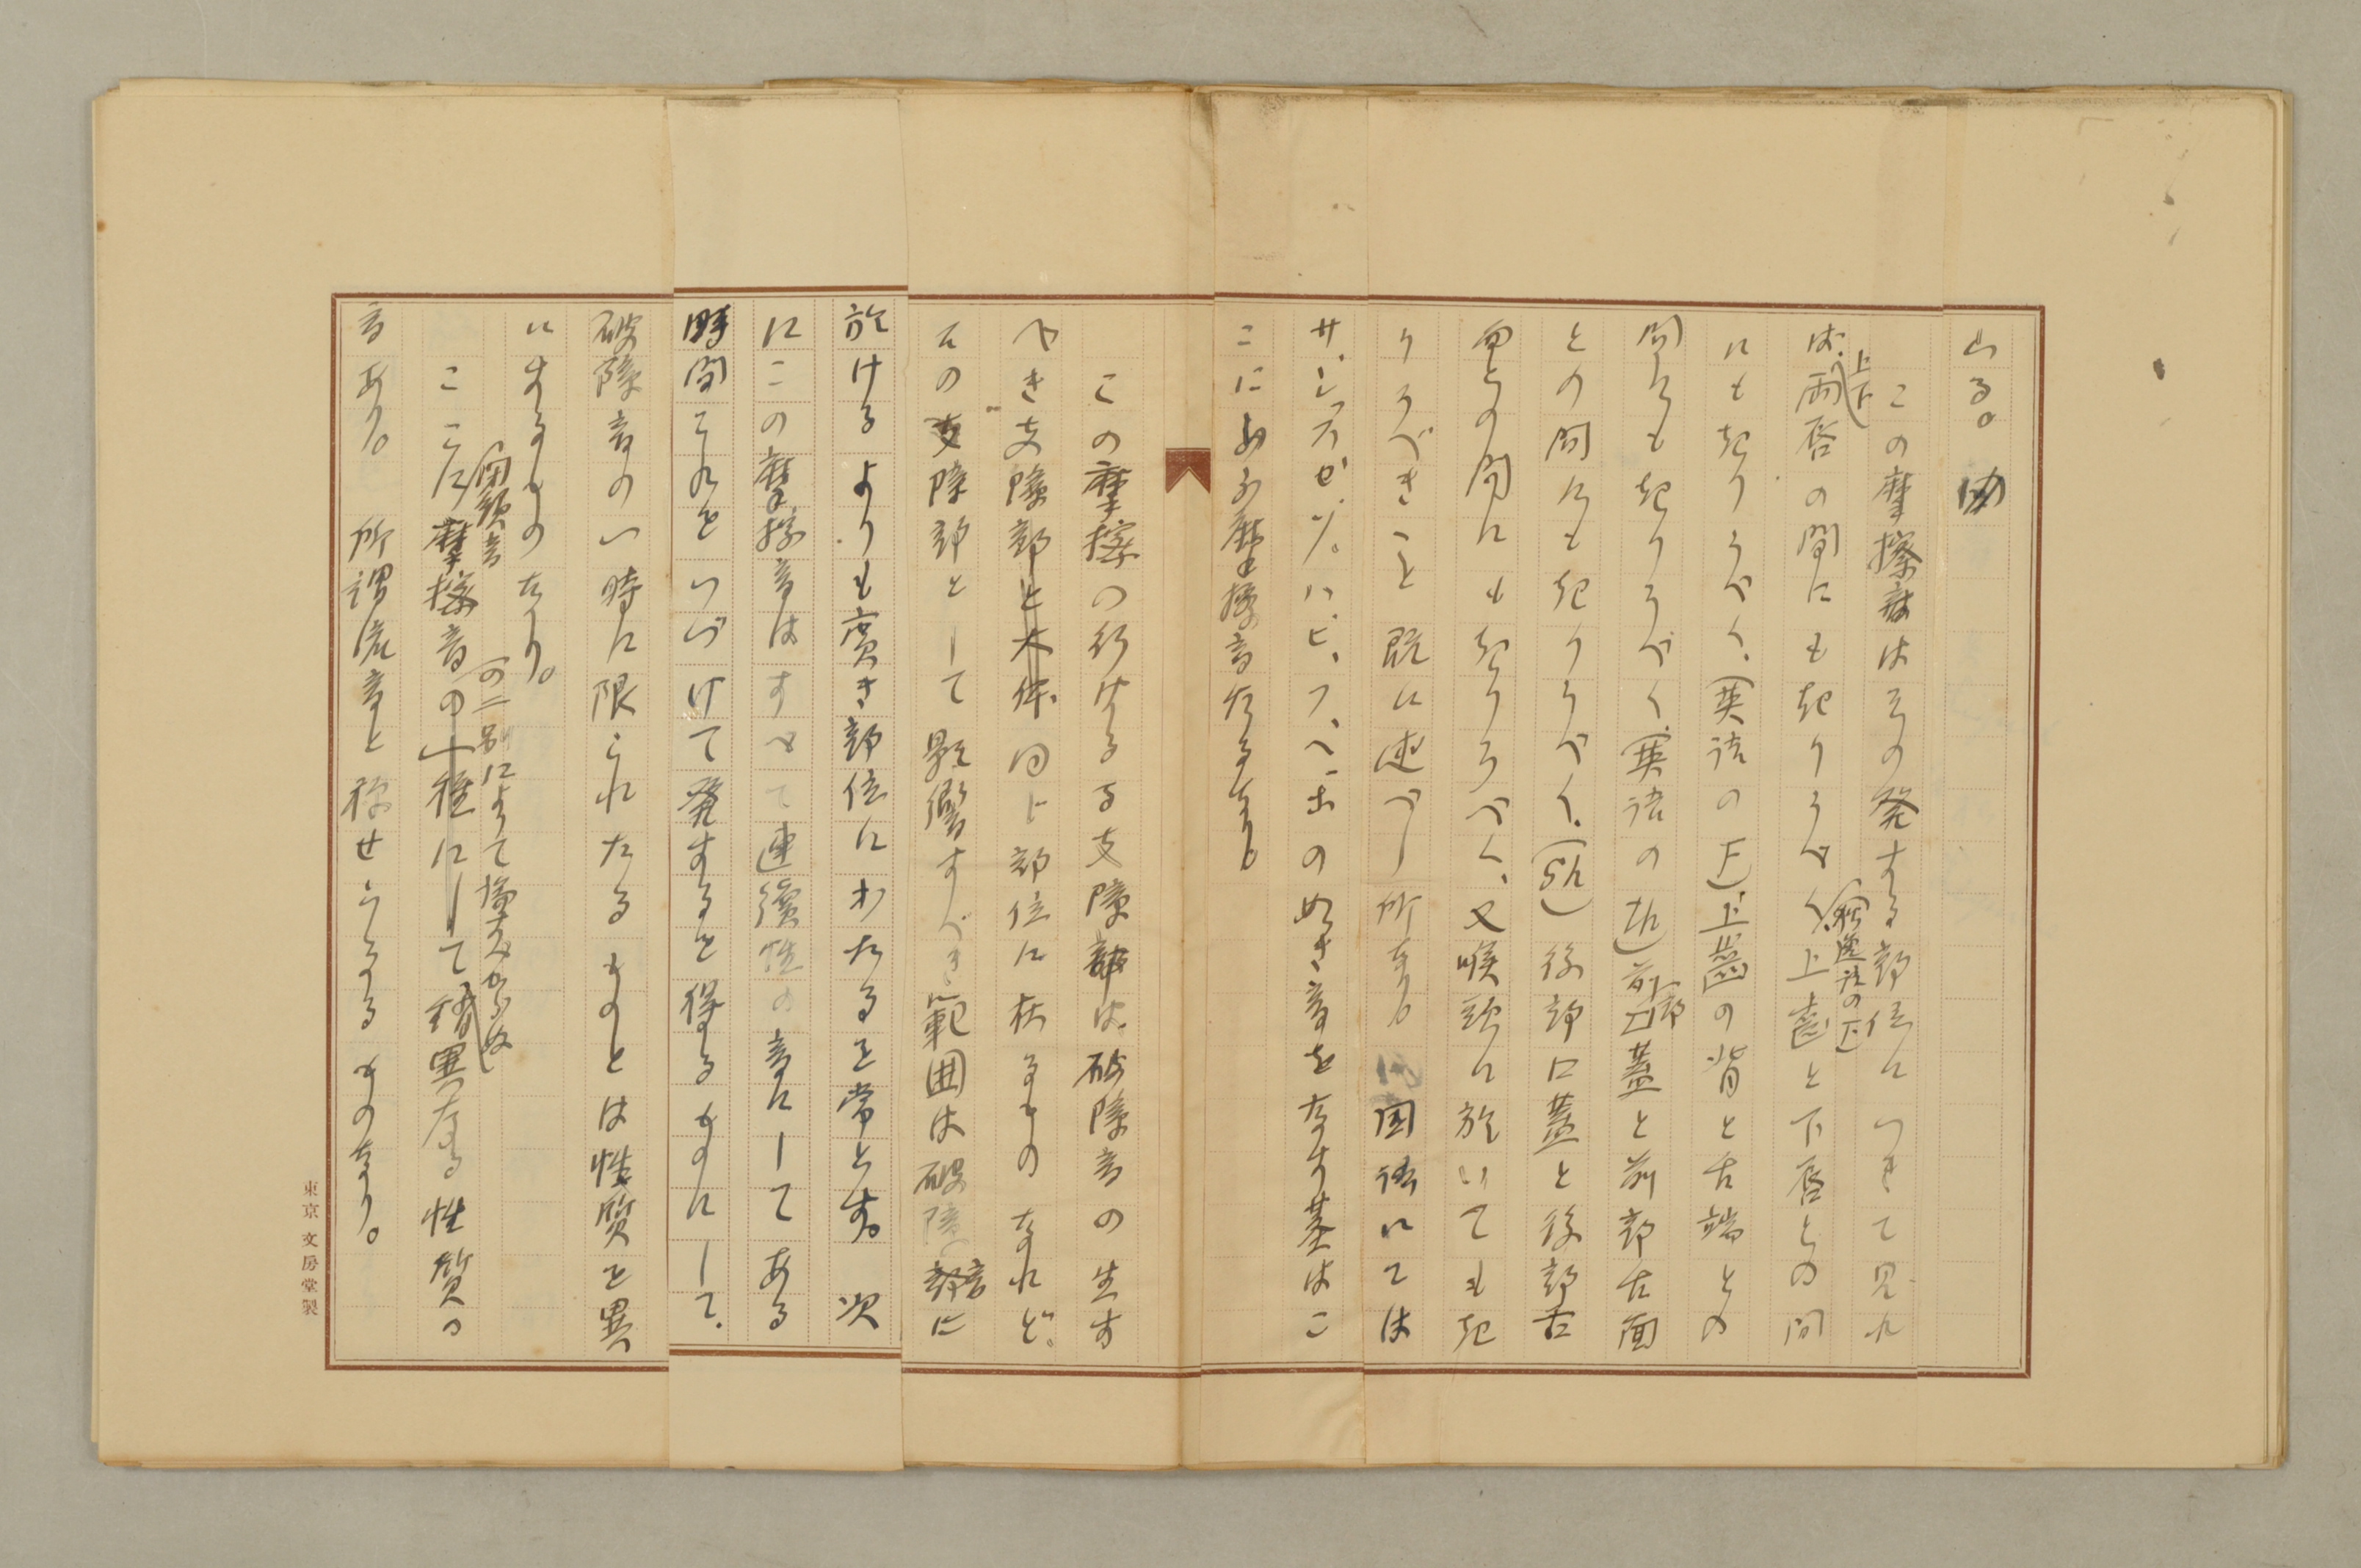 この摩擦音はその発する部位につきて見れ
ば、上下両唇の間にも起りうべく、(独逸語のF)上歯と下唇との間
にも起りうべく、(英語のF)上歯の背と舌端との
間にも起りうべく、(英語のth)前部口蓋と前部舌面
との間にも起りうべく、(sh)後部口蓋と後部舌
面との間にも起りうべく、又喉頭に於いても起
りうべきこと既に述べし所なり。国語にては
サ、シ、ス、セ、ソ。ハ、ヒ、フ、ヘ、ホの如き音をなす基はこ
こにある摩擦音たるなり。
この摩擦の行はるる支障部は、破障音の生す
べき支障部と大体同じ部位に在るものなれど。
その支障部として影響すべき範囲は破障音に
於けるよりも広き部位にわたるを常とす。次
にこの摩擦音はすべて連続性の音にしてある
時間これをつづけて発するを得るものにして、
破障音の一時に限られたるものとは性質を異
にするものなり。
ここに摩擦音の一種にして稍異なる性質の
音あり。所謂流音と称せらるるものなり。
東京 文房堂製